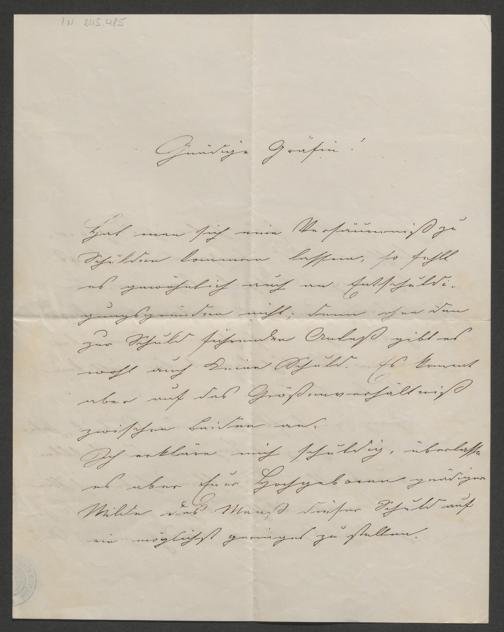 IN 215.485
Gnädige Gräfin!
Hat man sich eine Versäumniß zu
Schulden kommen lassen, so fehlt
es gewöhnlich auch an Entschuldi-
gungsgründen nicht; denn ohne den
zur Schuld führenden Anlaß gibt es
wohl auch keine Schuld. Es kommt
aber auf das Größenverhältniß
zwischen beiden an.
Ich erkläre mich schuldig, überlasse
es aber Euer Hochgeboren gnädigen
Milde das Maaß dieser Schuld auf
ein möglichst geringes zu stellen.